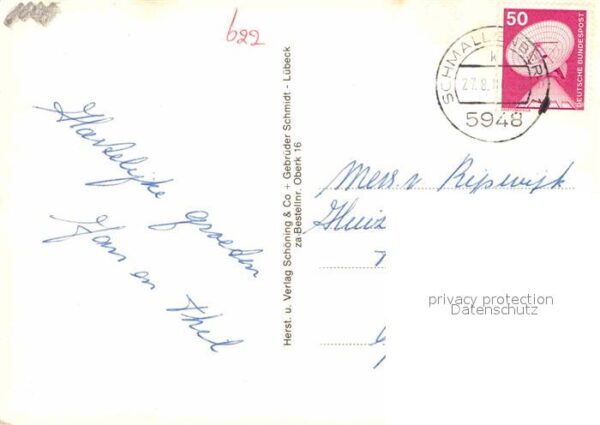 622
50
DEUTSCHE BUNDESPOST
SCHMALLENBERG
k
27.8.
5948
Hartelijke groeten
Jan en Thea
Herst. u. Verlag Schöning & Co + Gebrüder Schmidt - Lübeck
za Bestellnr. Oberk 16
Mevr. v. Rijswijk
Huize
privacy protection
Datenschutz